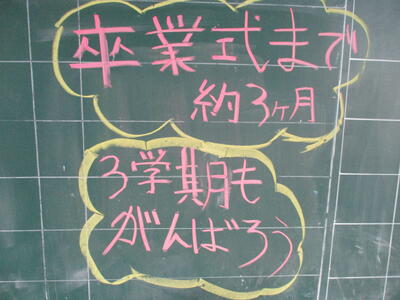 卒業式まで
約3ヶ月
3学期も
がんばろう